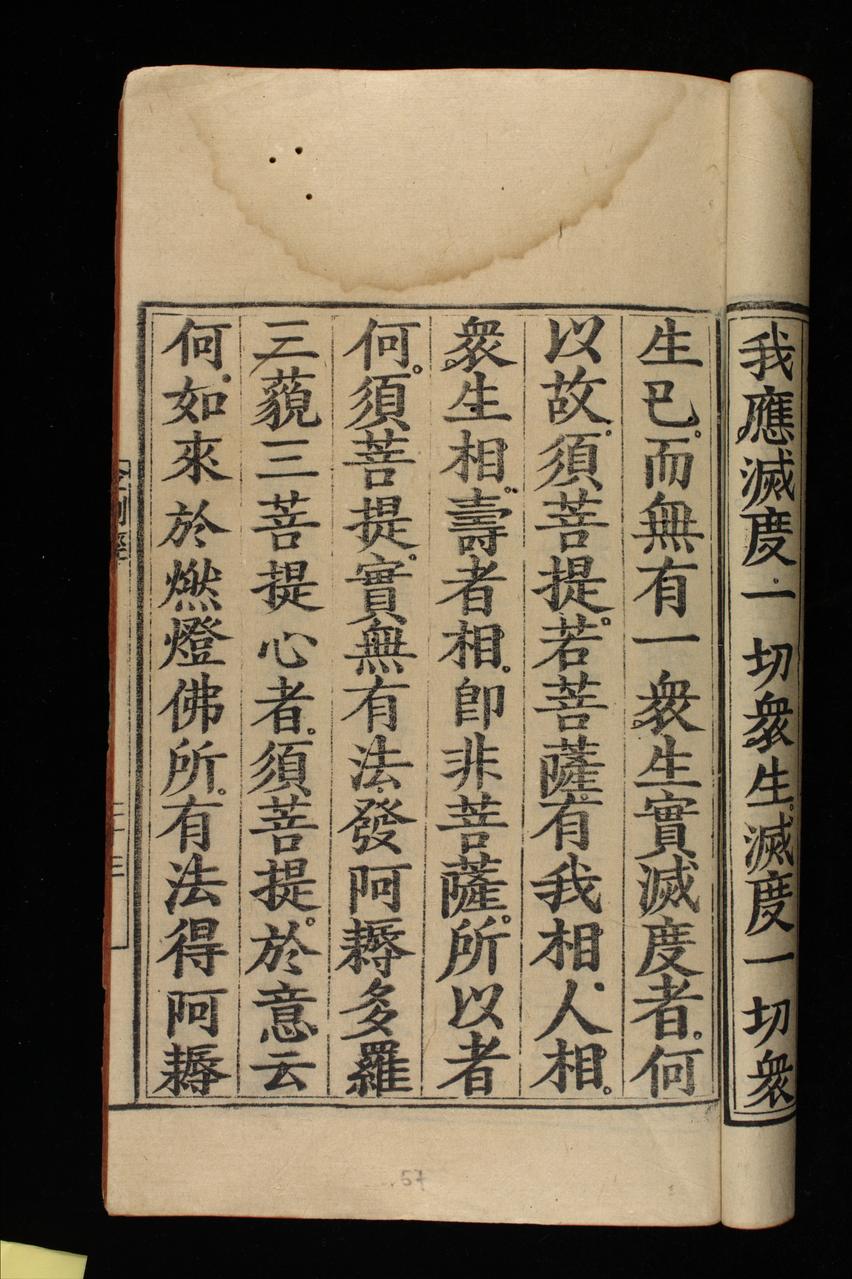 我應滅度一切衆生。滅度一切衆
生巳。而無有一衆生實滅度者。何
以故。須菩提。若菩薩有我相。人相。
衆生相。壽者相。卽非菩薩。所以者
何。須菩提。實無有法。發阿耨多羅
三藐三菩提心者。須菩提。於意云
何。如來於燃燈佛所。有法得阿耨
57